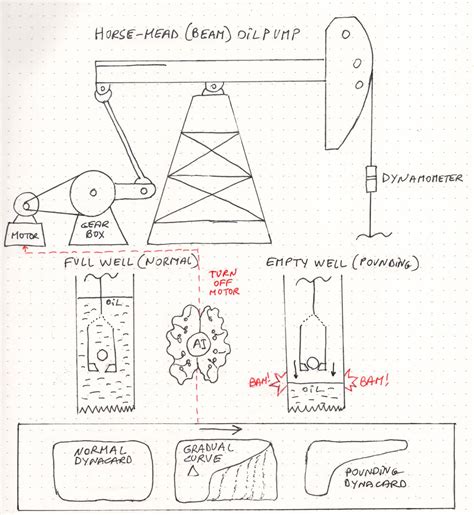 HORSE-HEAD (BEAM) OILPUMP
DYNAMOMETER
MOTOR
GEAR
BOX
FULL WELL (NORMAL)
TURN
OFF
MOTOR
EMPTY WELL (POUNDING)
OIL
AI
BAM!
BAM!
OIL
NORMAL
DYNACARD
GRADUAL
CURVE
POUNDING
DYNACARD